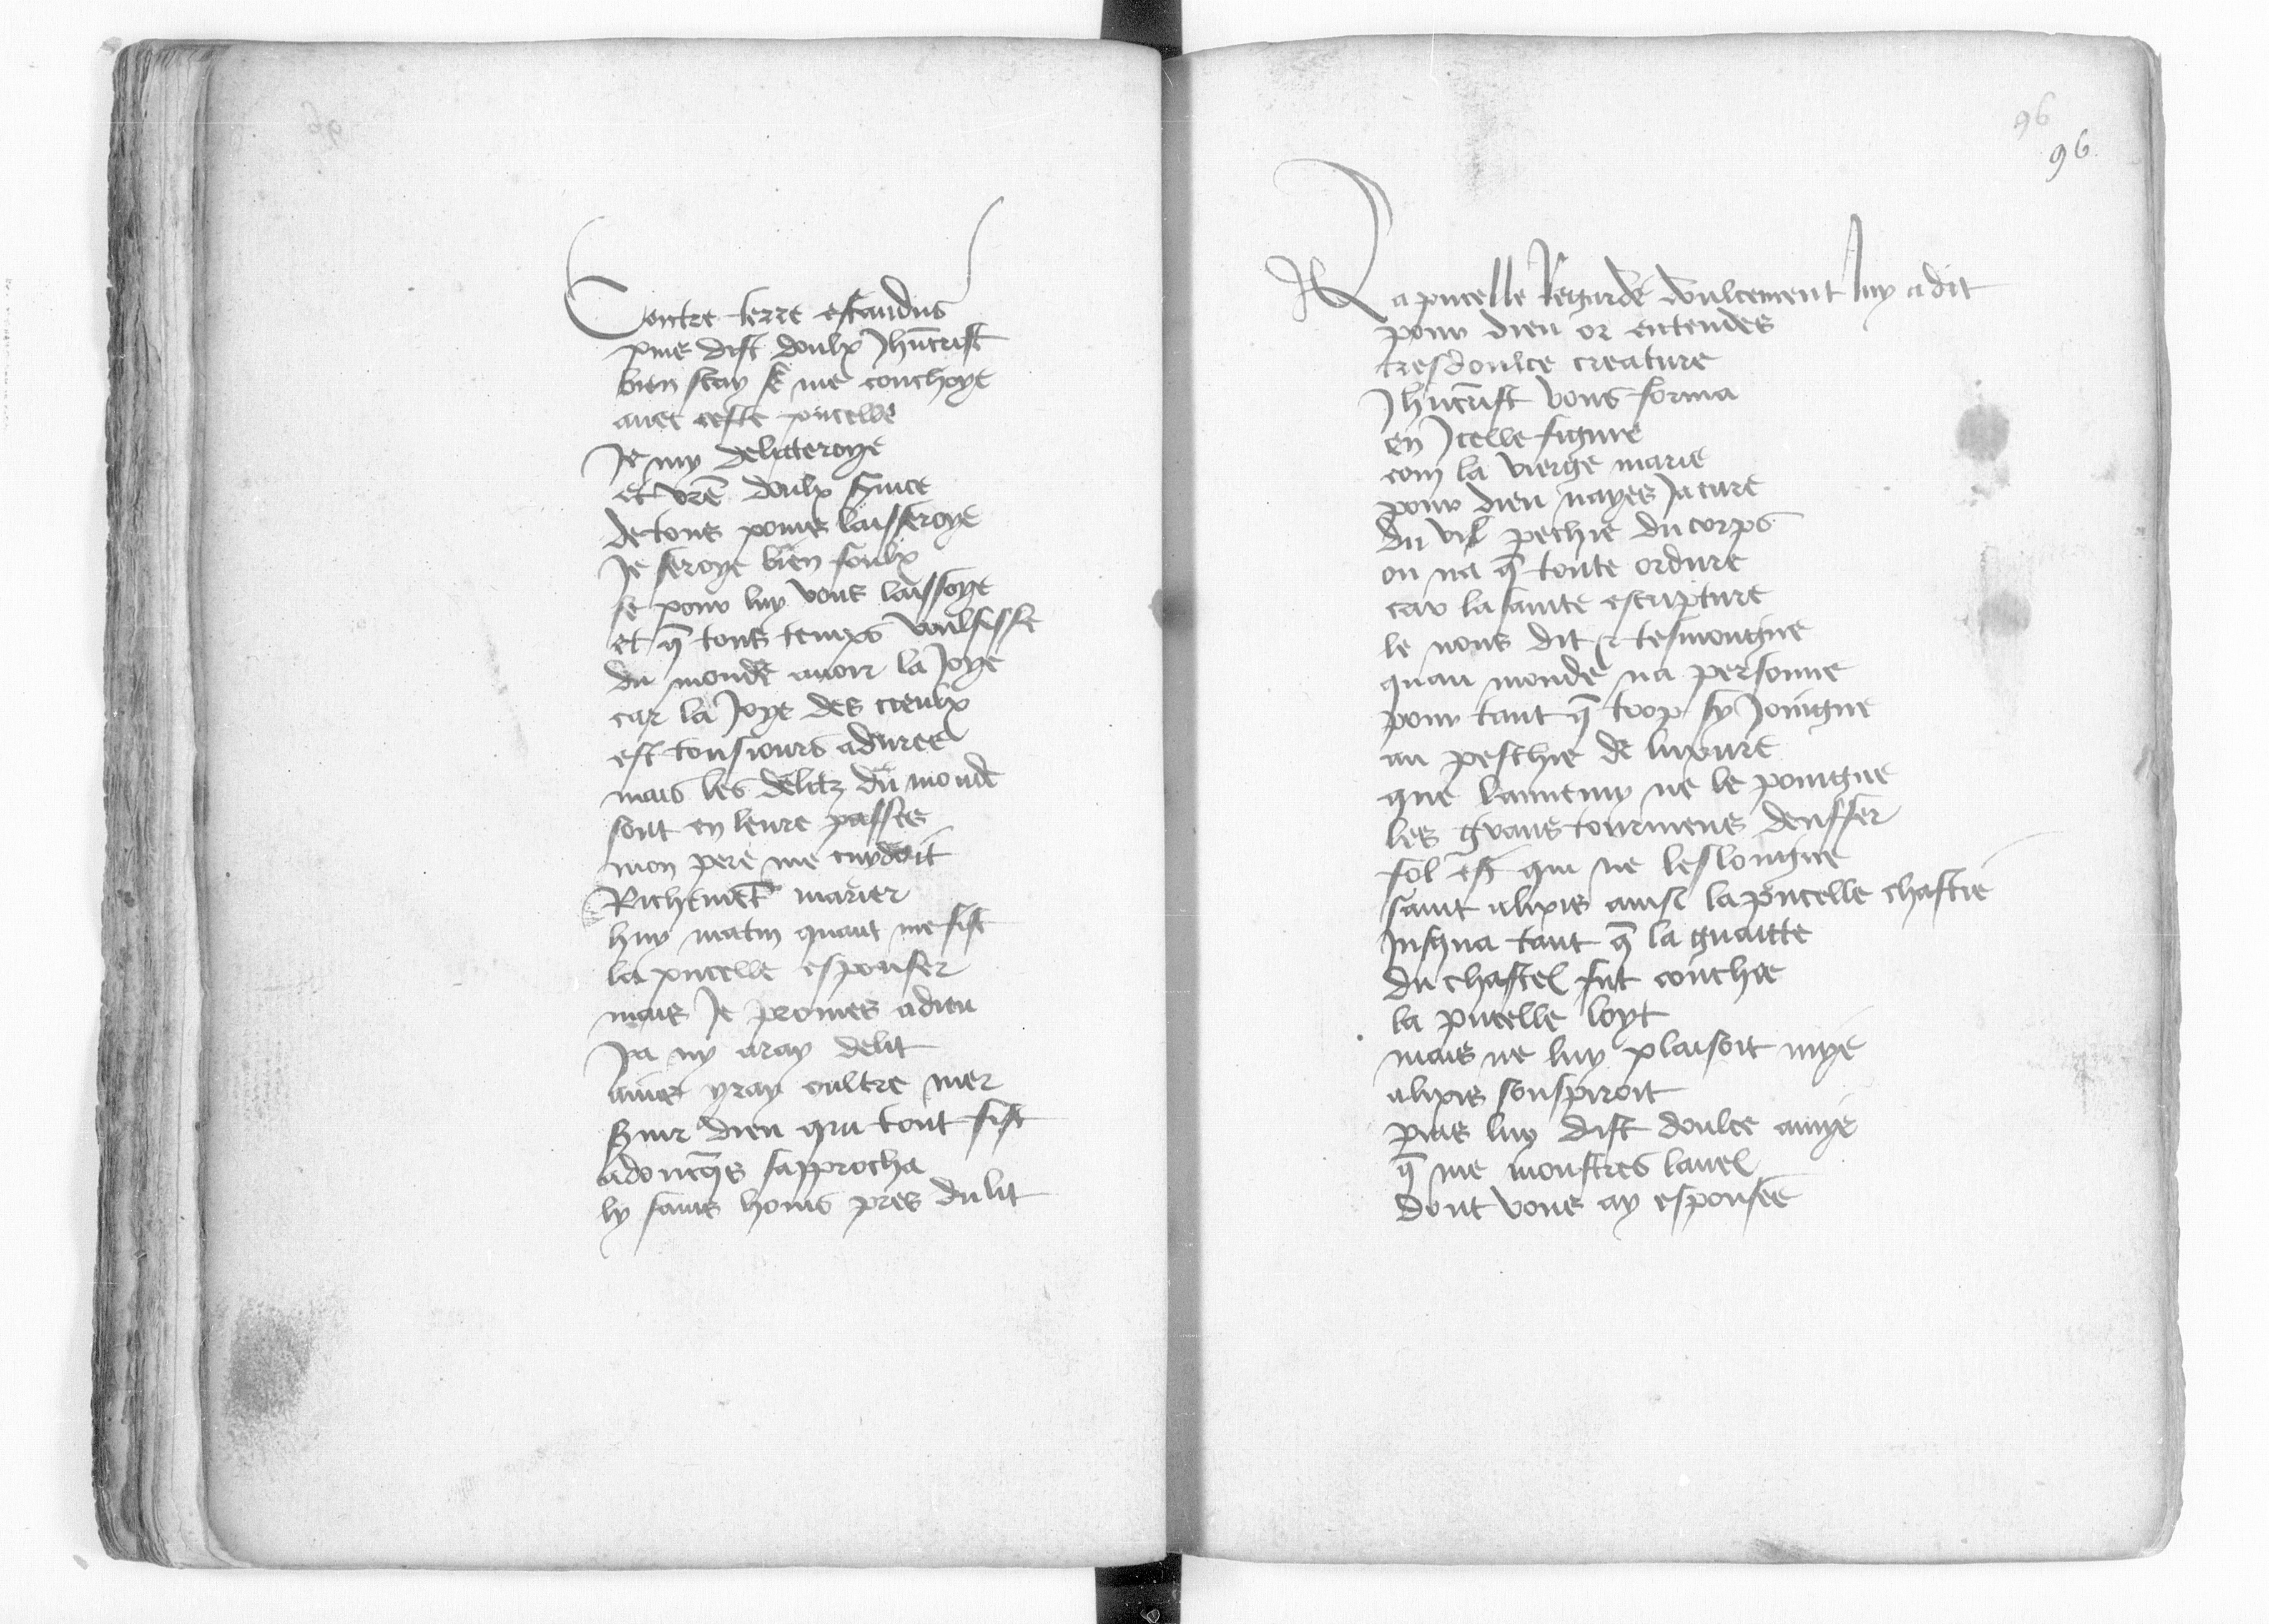 Contre terre estandus
puis dist doulx Jhucrist
bien scay se me couchoye
auec ceste pucelle
Je my delitteroye
et vre doulx seruice
de tous poins laisseroye
Je seroye bien foulx
se pour luy vous laissoye
et q tous temps voulsisse
du monde auoir la Joye
car la Joye des cieulx
est tousiours aduree
mais les delitz du monde
sont en leure passes
mon pere me cuydoit
Richemet marier
huy matin quant me fist
la pucelle espouser
mais Je promes a dieu
Ja ny aray delit
ains yray oultre mer
seruir dieu qui tout fist
adoncqs sapprocha
ly sains homs pres du lit
96
96
La pucelle Regarde doulcement luy a dit
pour dieu or entendes
tresdoulce creature
Jhucrist vous forma
en Jcelle figure
com la vierge marie
pour dieu nayes Ja cure
du vil pechie du corps
ou na q toute ordure
car la sainte escripture
le nous dit et tesmoingne
quau monde na personne
pour tant q trop sy Joingne
au peschie de luxure
que lannemy ne le poingne
les grans tourmens denffer
fol est qui ne leslongne
saint alixis ainsi la pucelle chastie
Jusqua tant q la guaitte
du chastel fut couchie
la pucelle loyt
mais ne luy plaisoit mye
alixis souspiroit
puis luy dist doulce amye
q me monstres lanel
dont vous ay espousee